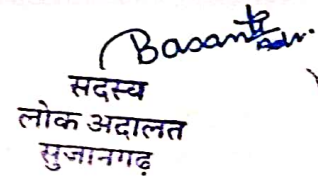 Basant
Adv.
सदस्य
लोक अदालत
सुजानगढ़